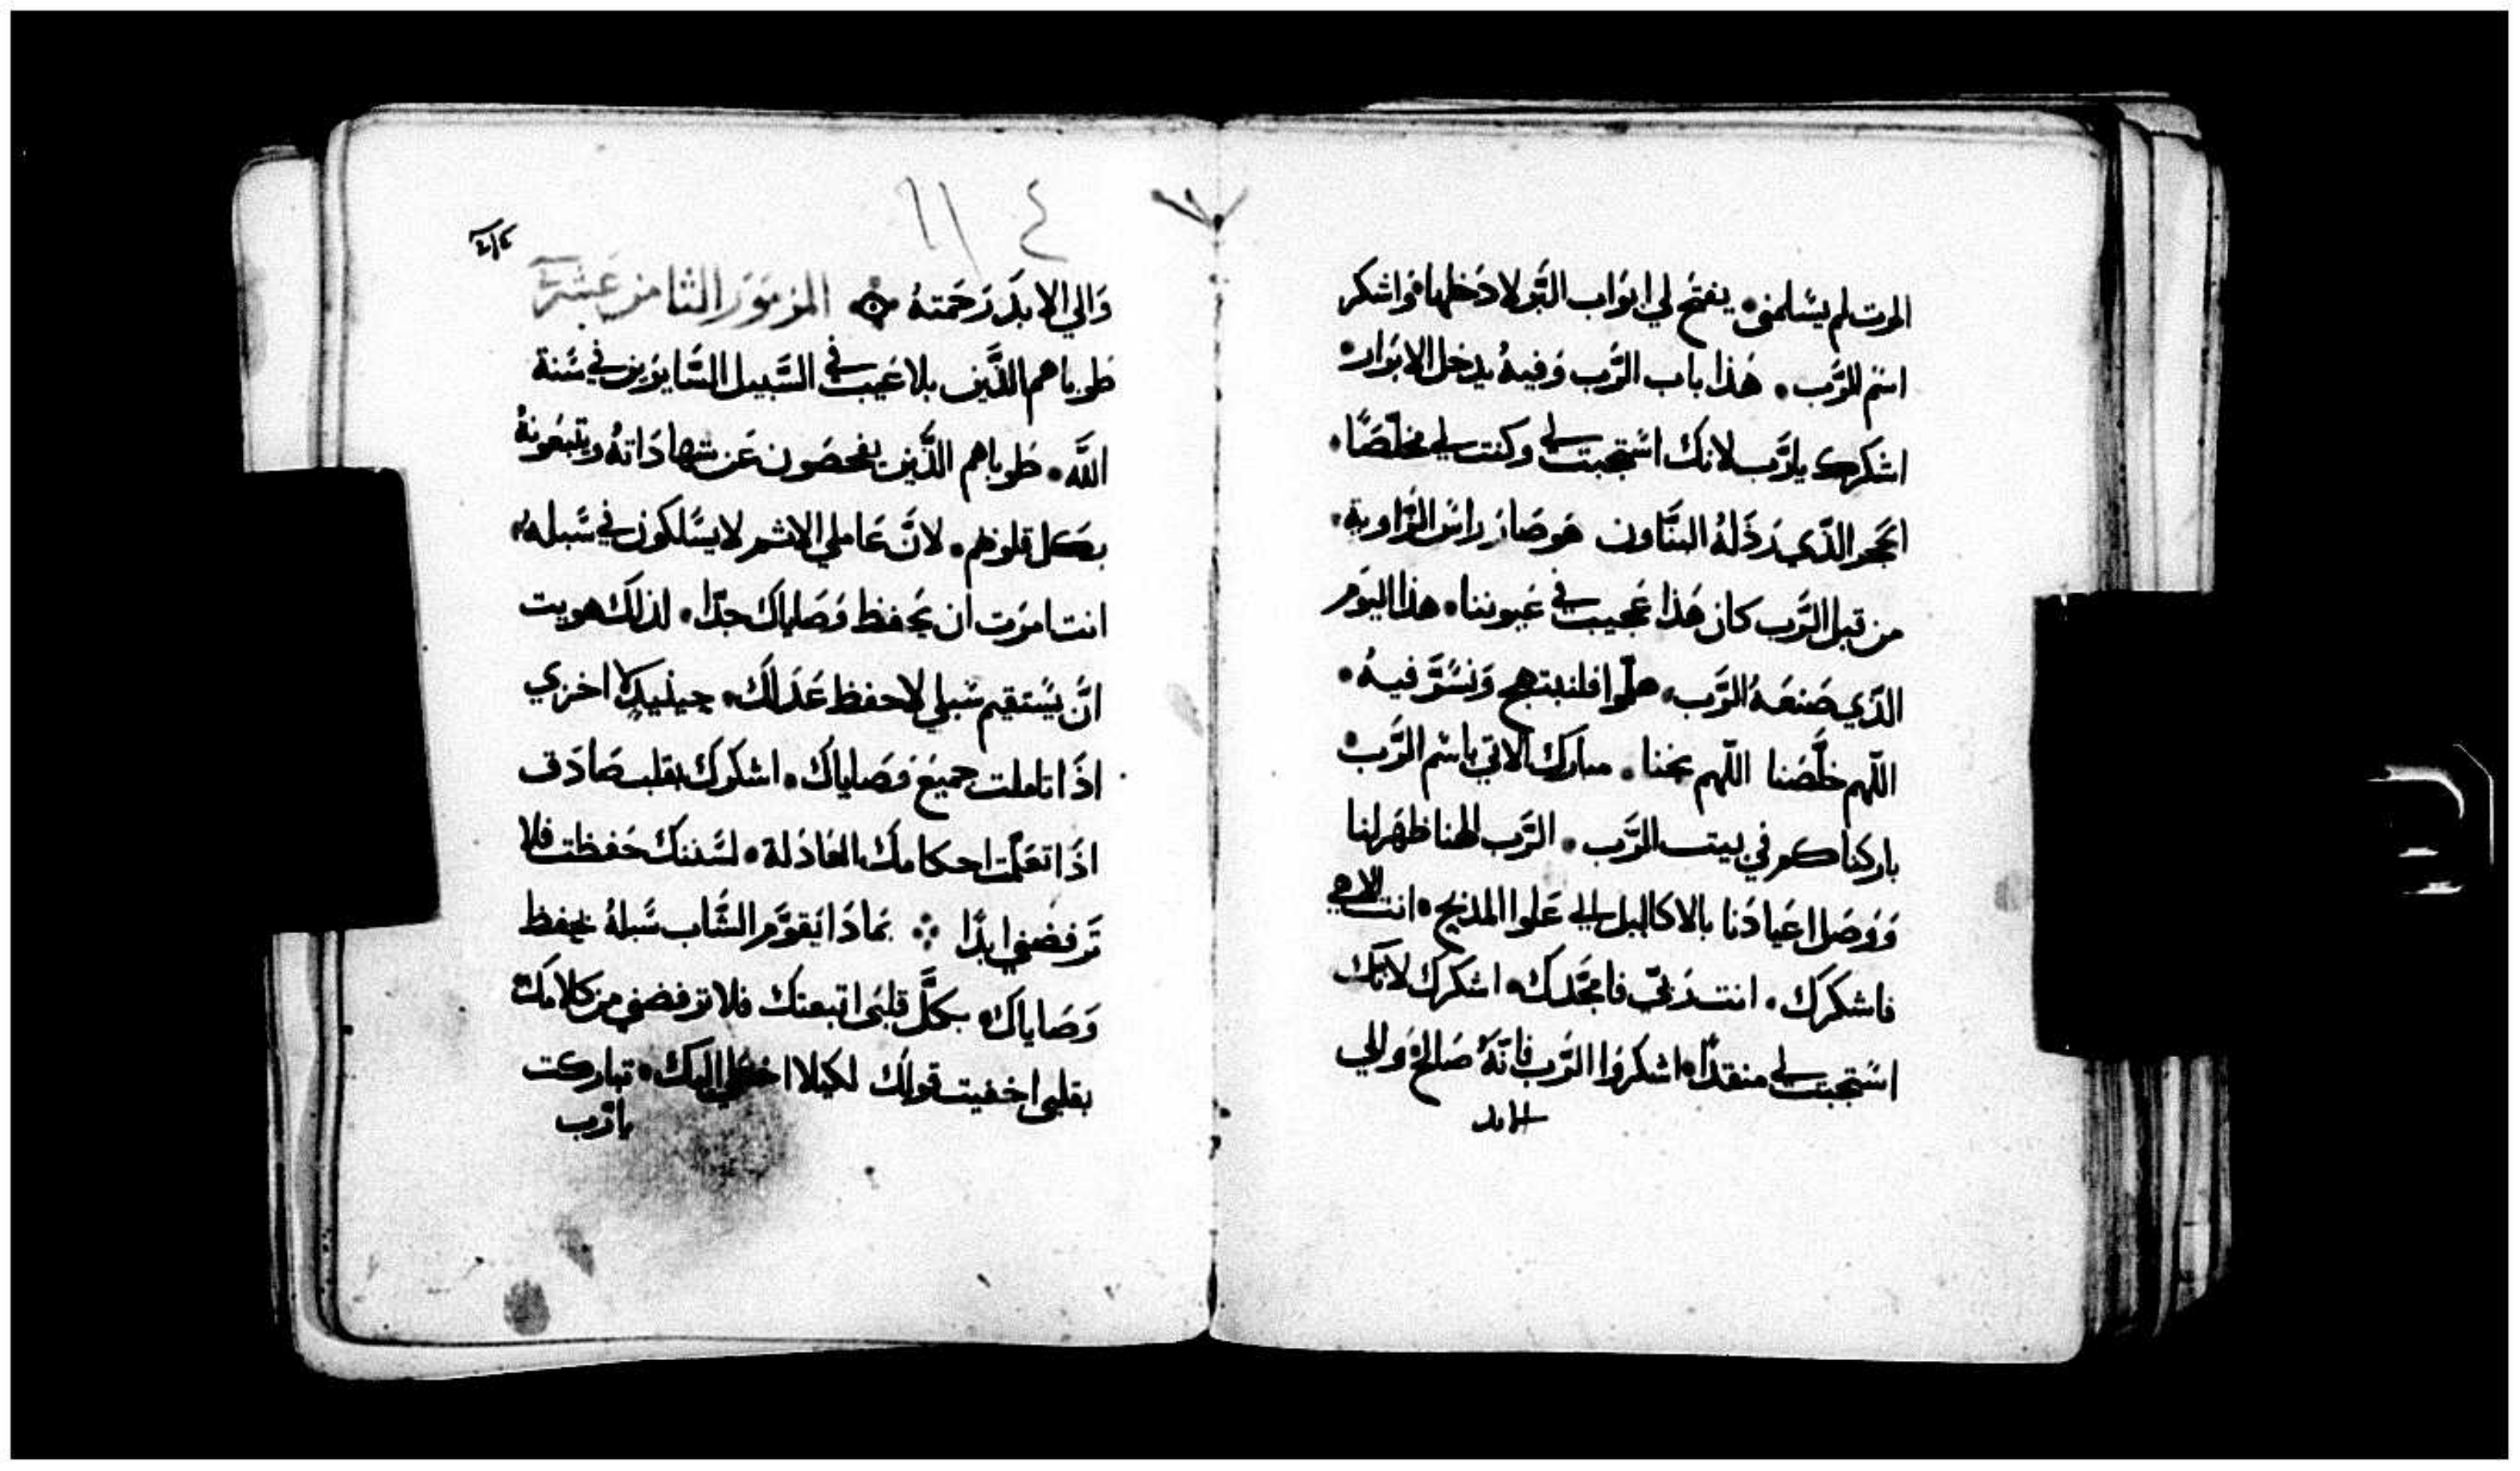 الموت لم يسلمني • يفتح لي ابواب البَّر لادخلها واشكر
اسم الرَّب • هَذا باب الرَّب وَفيهُ يدخل الابرار •
اشكرك يارَّب لانك اسَتجبت لي وكنت لي مخلّصًا •
الحجر الذّي رَذَلهُ البنَّاون هَو صَار راسَ الزَّاوية •
من قبل الرَّب كان هَذا عَجيب في عَيوننا • هذا اليوَم
الذّي صَنعَهُ الرَّب • هلّموا فلنبتهج وَنسُرَّ فيهُ •
اللّهم خلَّصنا اللّهم نجنا • مبارك الاتي باسَم الرَّب •
باركناكم في بيت الرَّب • الرَّب الهنا ظهَر لنا
وَوصَل اعيادَنا بالاكاليل الي عَلوا المذبح • انت الاهي
فاشكرك • انت رَبيّ فامجّدك • اشكرك لانك
اسَتجبت لي منقذًا • اشكرُوا الرَّب فانَّهُ صَالح وَالي
الابد
٦١١ ٤
وَالي الابدَ رَحَمتهُ المزموَر الثامن عَشر
طوباهم الذَّين بلا عَيب في السَّبيل السَّايرَين في سَنة
اللَّه • طوباهم الذَّين يفحصَون عَن شهادَاتهُ ويتبعَونهُ
بكل قلوبهم • لانَّ عَاملي الاثم لا يسَلكون في سَبله •
انت امرَت ان تحفظ وَصَاياك جدّا • لذلك هويت
انَّ يسَتقيم سَبلي لاحفظ عَدَلك • حينيذٍ لا اخزي
اذَا تاملت جميعَ وَصَاياك • اشكرك بقلب صَادَق
اذَا تعَلمّت احكامك العَادَلة • لسَننك حَفظت فلا
تَرفضني ابدًا بماذَا يَقوَّم الشَّاب سَبلهُ بحفظ
وَصَاياك • بكلَّ قلبَي اتبعتك فلا ترفضني من كلامَك
بقلبي اخفيت قولك لكيلا اخطي اليك • تباركت
يارَّب